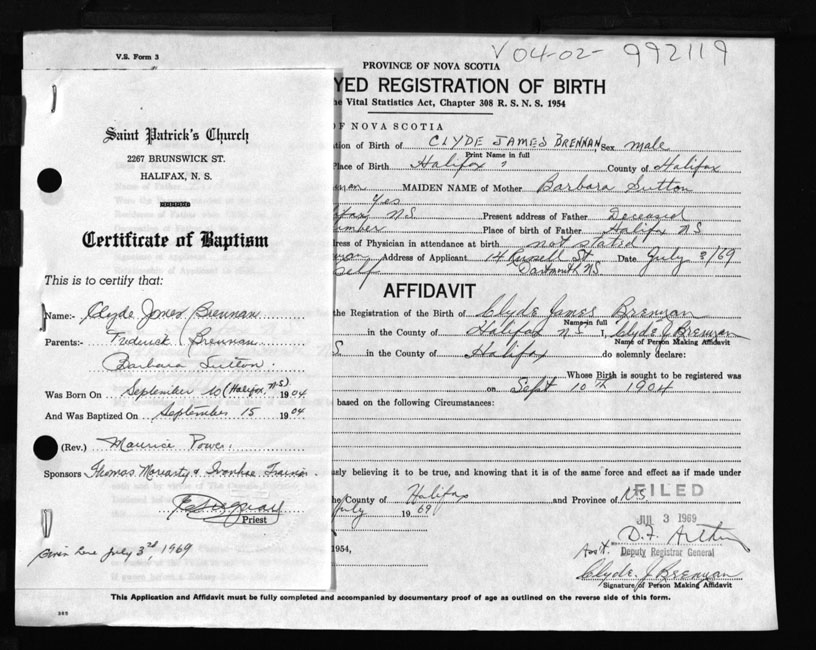 V.S. Form 3
V 04-02- 992119
PROVINCE OF NOVA SCOTIA
YED REGISTRATION OF BIRTH
he Vital Statistics Act, Chapter 308 R. S. N. S. 1954
OF NOVA SCOTIA
tion of Birth of CLYDE JAMES BRENNAN, Sex male
Print Name in full
Place of Birth Halifax County of Halifax
nan MAIDEN NAME of Mother Barbara Sutton
Yes
ifax N.S. Present address of Father Deceased
umber Place of birth of Father Halifax N.S
ress of Physician in attendance at birth not stated
Address of Applicant 14 Russell St. Date July 3/69
Self Dartmouth N.S.
AFFIDAVIT
the Registration of the Birth of Clyde James Brennan
Name in full
in the County of Halifax N.S I, Clyde J Brennan
Name of Person Making Affidavit
S. in the County of Halifax do solemnly declare:
Whose Birth is sought to be registered was
on Sept 10th 1904
based on the following Circumstances:
sly believing it to be true, and knowing that it is of the same force and effect as if made under
the County of Halifax and Province of N.S.
July 1969
FILED
JUL 3 1969
1954,
Asst. Deputy Registrar General
Clyde. J. Brennan
Signature of Person Making Affidavit
This Application and Affidavit must be fully completed and accompanied by documentary proof of age as outlined on the reverse side of this form.
Saint Patrick's Church
2267 BRUNSWICK ST.
HALIFAX, N. S.
Certificate of Baptism
This is to certify that:
Name:- Clyde James Brennan
Parents:- Frederick Brennan
Barbara Sutton
Was Born On September 10 (Halifax, N.S.) 1904
And Was Baptized On September 15 1904
(Rev.) Maurice Power
Sponsors Thomas Moriarty &
Priest
Given here July 3rd, 1969